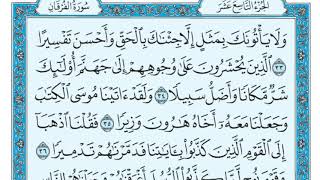 الجزء التاسع عشر سورة الفرقان
وَلَا يَأْتُونَكَ بِمَثَلٍ إِلَّا جِئْنَاكَ بِالْحَقِّ وَأَحْسَنَ تَفْسِيرًا
٣٣ الَّذِينَ يُحْشَرُونَ عَلَىٰ وُجُوهِهِمْ إِلَىٰ جَهَنَّمَ أُولَٰئِكَ
شَرٌّ مَّكَانًا وَأَضَلُّ سَبِيلًا ٣٤ وَلَقَدْ آتَيْنَا مُوسَى الْكِتَابَ
وَجَعَلْنَا مَعَهُ أَخَاهُ هَارُونَ وَزِيرًا ٣٥ فَقُلْنَا اذْهَبَا
إِلَى الْقَوْمِ الَّذِينَ كَذَّبُوا بِآيَاتِنَا فَدَمَّرْنَاهُمْ تَدْمِيرًا ٣٦